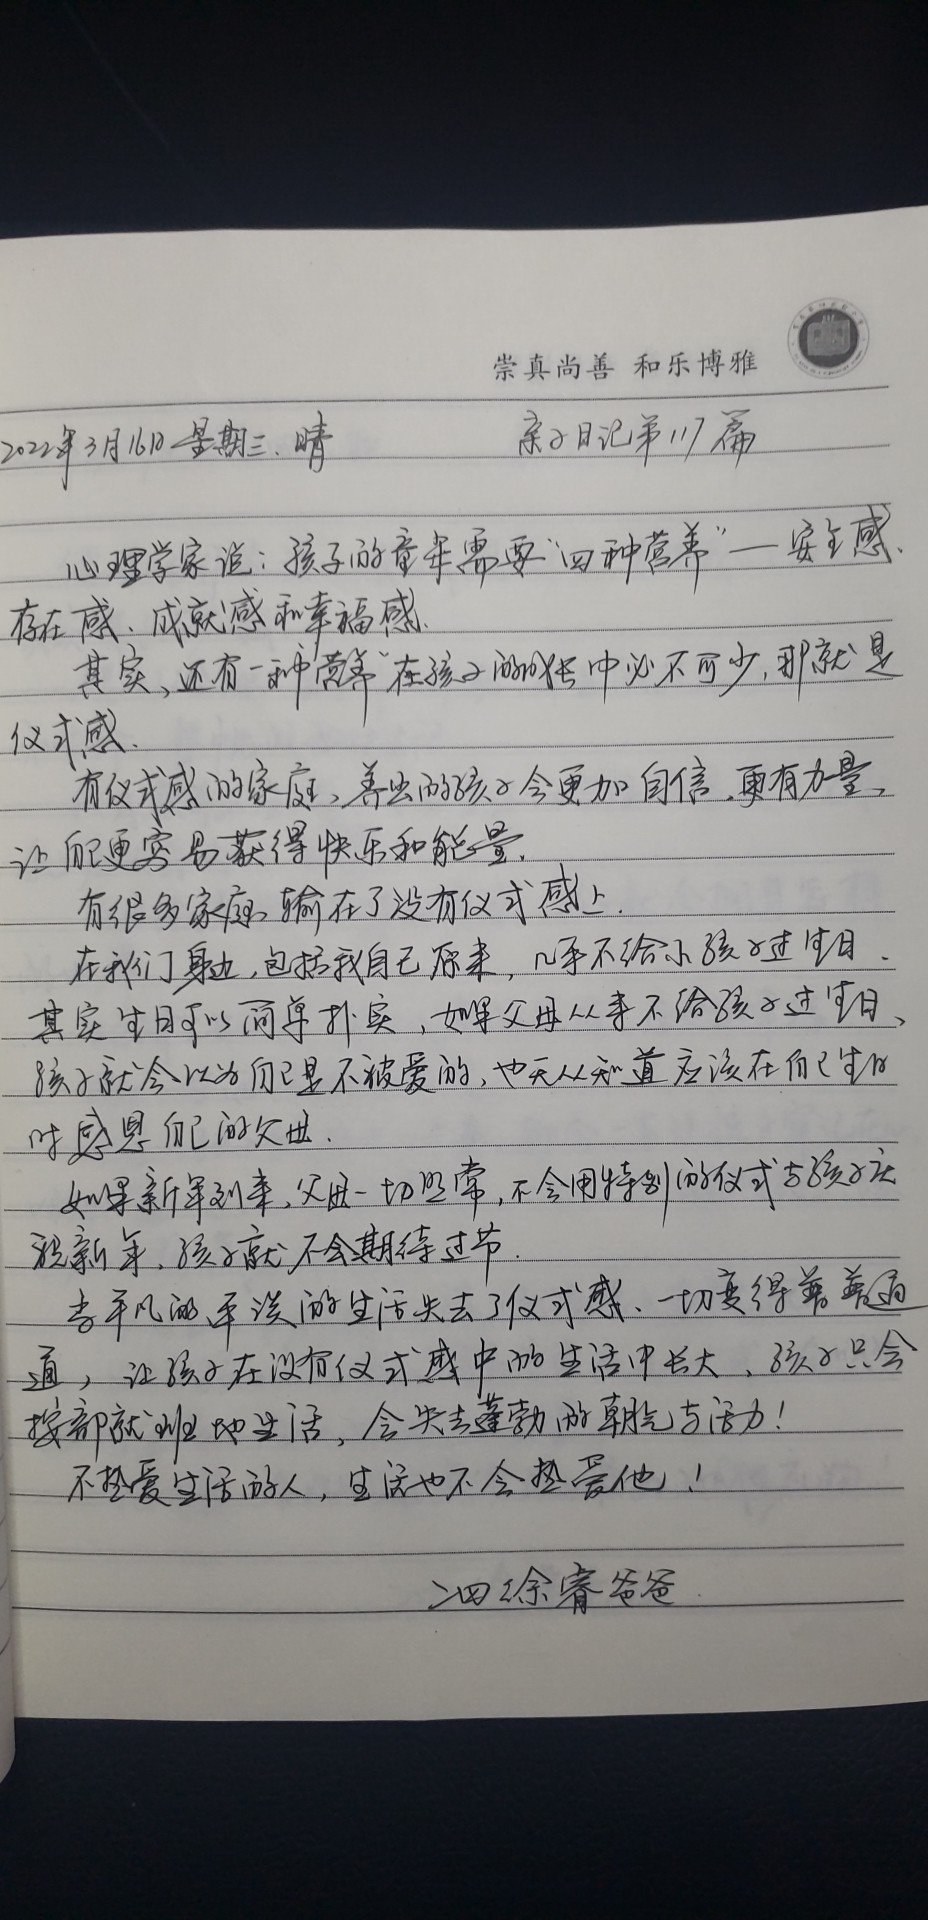 崇真尚善 和乐博雅
2022年3月16日 星期三、晴 亲子日记第117篇
心理学家说：孩子的童年需要“四种营养”—安全感、
存在感、成就感和幸福感.
其实、还有一种“营养”在孩子的成长中必不可少，那就是
仪式感.
有仪式感的家庭、养出的孩子会更加自信、更有力量、
让自己更容易获得快乐和能量.
有很多家庭、输在了没有仪式感上.
在我们身边，包括我自己原来，几乎不给小孩子过生日.
其实生日可以简单朴实，如果父母从来不给孩子过生日、
孩子就会以为自己是不被爱的，也无从知道应该在自己生日
时感恩自己的父母.
如果新年到来，父母一切照常，不会用特别的仪式与孩子庆
祝新年、孩子就不会期待过节.
当平凡的平淡的生活失去了仪式感、一切变得普普通
通，让孩子在没有仪式感中的生活中长大、孩子只会
按部就班地生活，会失去蓬勃的朝气与活力！
不热爱生活的人，生活也不会热爱他！
二四 徐睿爸爸.